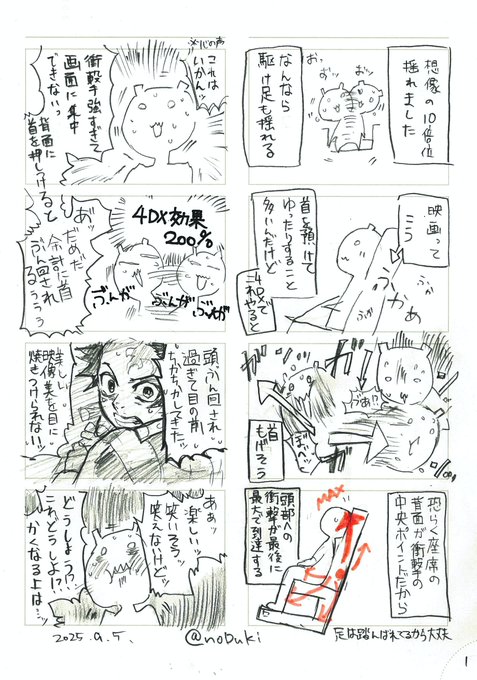 想像の10倍位
揺れました
なんなら
駆け足も揺れる
お。
お。
映画って
こう
首を預けて
ゆったりすること
多いんだけど
4DXで
これやると
ぶか
かぁ
首
もげそう
恐らく座席の
背面が衝撃の
中央ポイントだから
頭部への
衝撃が最後に
最大で到達する
MAX
足は踏んばれてるから大丈夫
これは
いかんッ
衝撃手強すぎて
画面に集中
できないっ
背面に
首を押しつけると
4DX効果
200%
ぶんが
ぶんが
ぶんが
あッ
だめだ
余計に首
ぶん回される
ぅぅぅ
頭ぶん回され
過ぎて目の前
ちかちかしてきたッ
美しい
映像美を目に
焼きつけられないッ
あぁッ
楽しいッ
笑いそうッ
笑えないけどッ
どうしよう!?
これどうしよ!?
かくなる上は…ッ
2025.9.5.
@noBuki
1